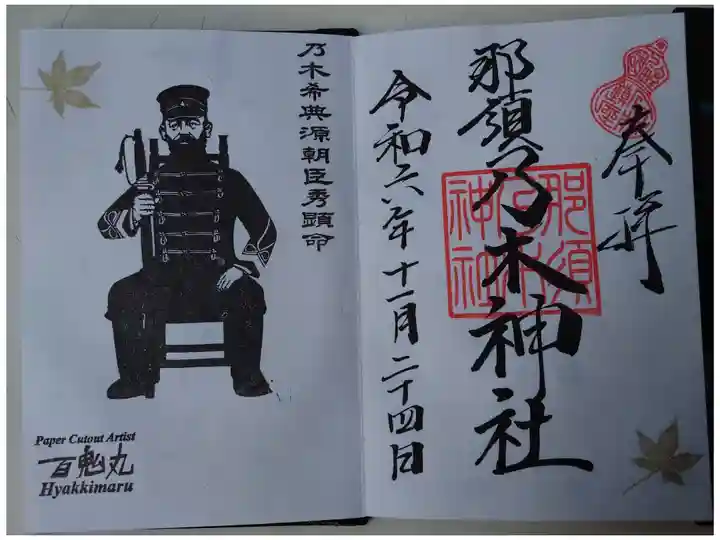 奉拝
那須乃木神社
那須乃木神社
令和六年十一月二十四日
乃木希典源朝臣秀顕命
Paper Cutout Artist
百鬼丸
Hyakkimaru